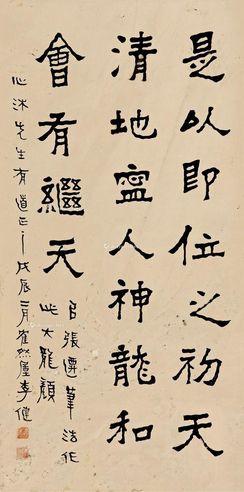 是以即位之初天
清地寧人神龍和
會有繼天
以張遷筆法作
此大龍顏
心沐先生有道正之戊辰二月崔然屋李健